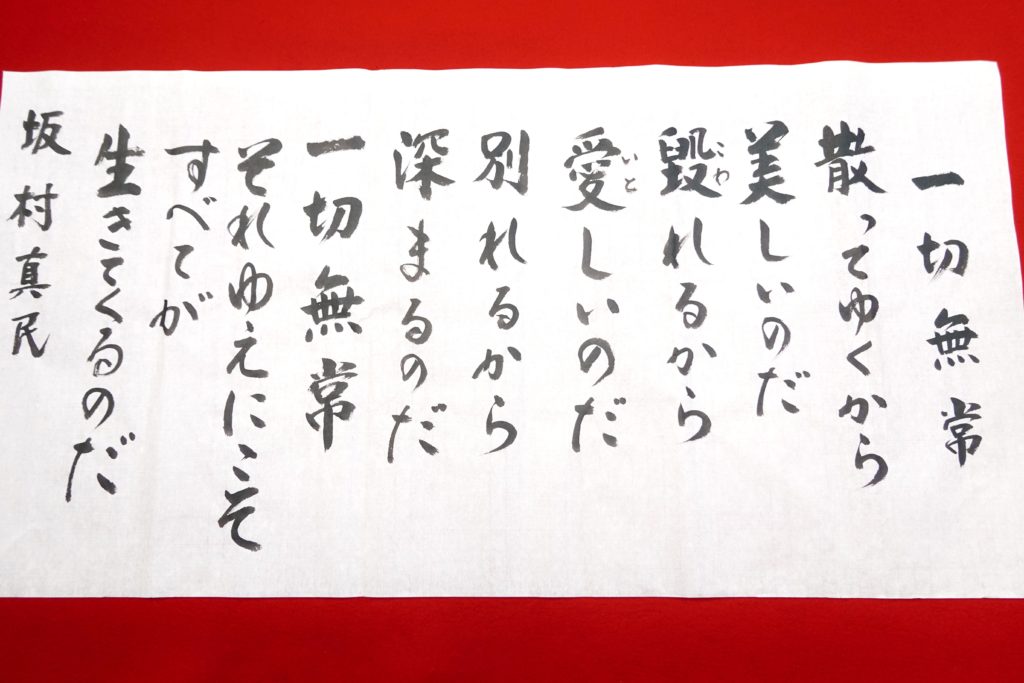 一切無常
散ってゆくから
美しいのだ
毀れるから
こわ
愛しいのだ
いと
別れるから
深まるのだ
一切無常
それゆえにこそ
すべてが
生きてくるのだ
坂村真民